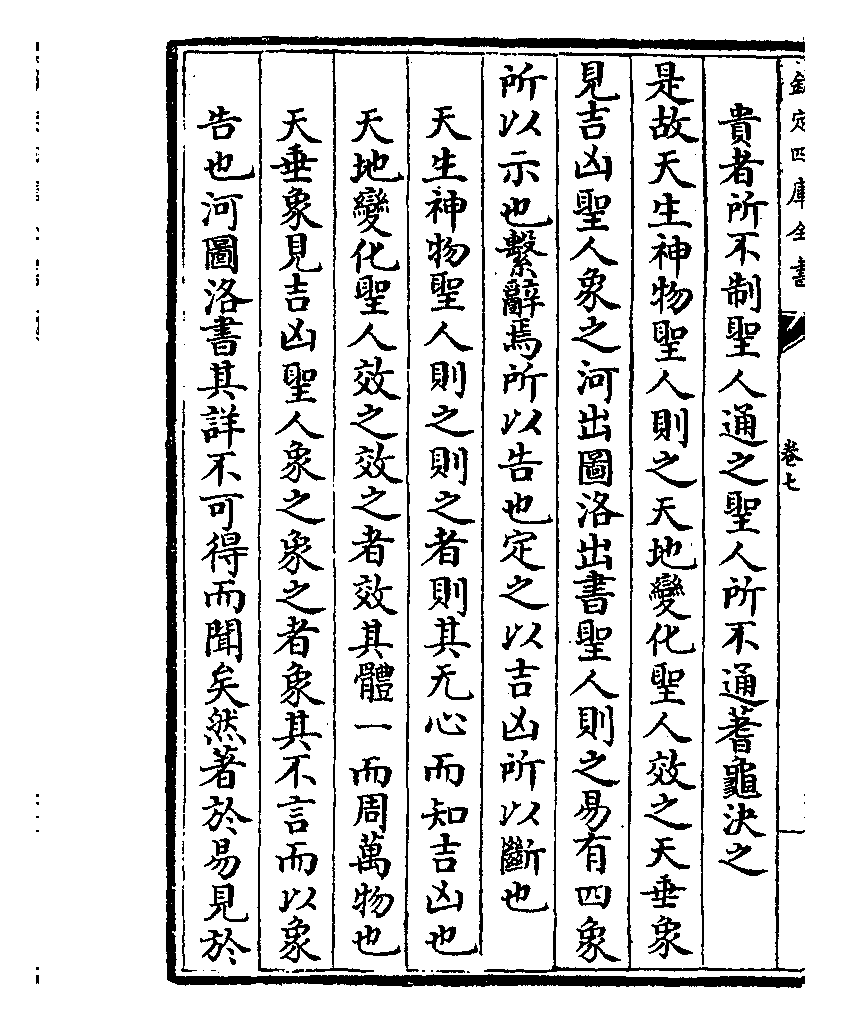 欽定四庫全書
卷七
貴者所不制聖人通之聖人所不通蓍龜決之
是故天生神物聖人則之天地變化聖人效之天垂象
見吉凶聖人象之河出圖洛出書聖人則之易有四象
所以示也繫辭焉所以告也定之以吉凶所以斷也
天生神物聖人則之則之者則其无心而知吉凶也
天地變化聖人效之效之者效其體一而周萬物也
天垂象見吉凶聖人象之象之者象其不言而以象
告也河圖洛書其詳不可得而聞矣然著於易見於